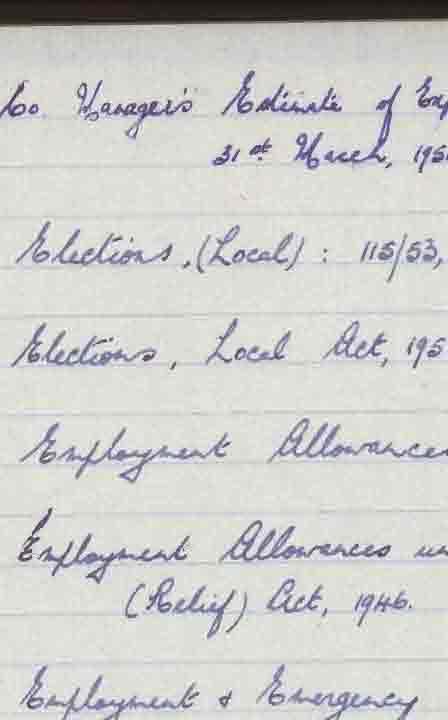 Co. Manager's Estimate of Exp
31st March, 195
Elections, (Local) : 115/53,
Elections, Local Act, 195
Employment Allowances
Employment Allowances un
(Relief) Act, 1946.
Employment & Emergency